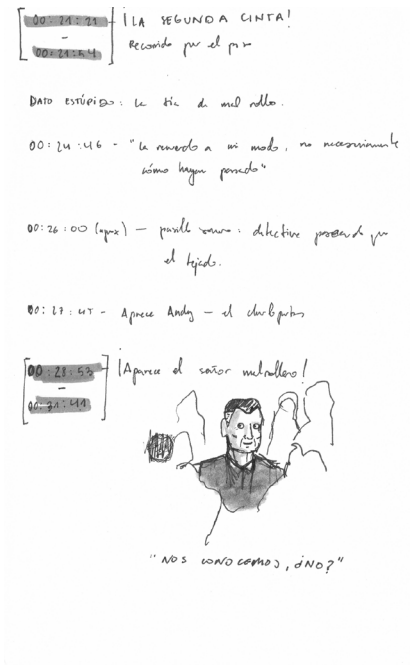 00:21:21
¡LA SEGUNDA CINTA!
-
Recorrido por el piso
00:21:54
DATO ESTÚPIDO: la tía da mal rollo.
00:24:46 - "Lo recuerdo a mi modo, no necesariamente
cómo hayan pasado"
00:26:00 (aprox) - pasillo : detective paseando por
el tejado.
00:27:45 - Aparece Andy - el
00:28:53
¡Aparece el señor malrollero!
-
00:31:41
"NOS CONOCEMOS, ¿NO?"